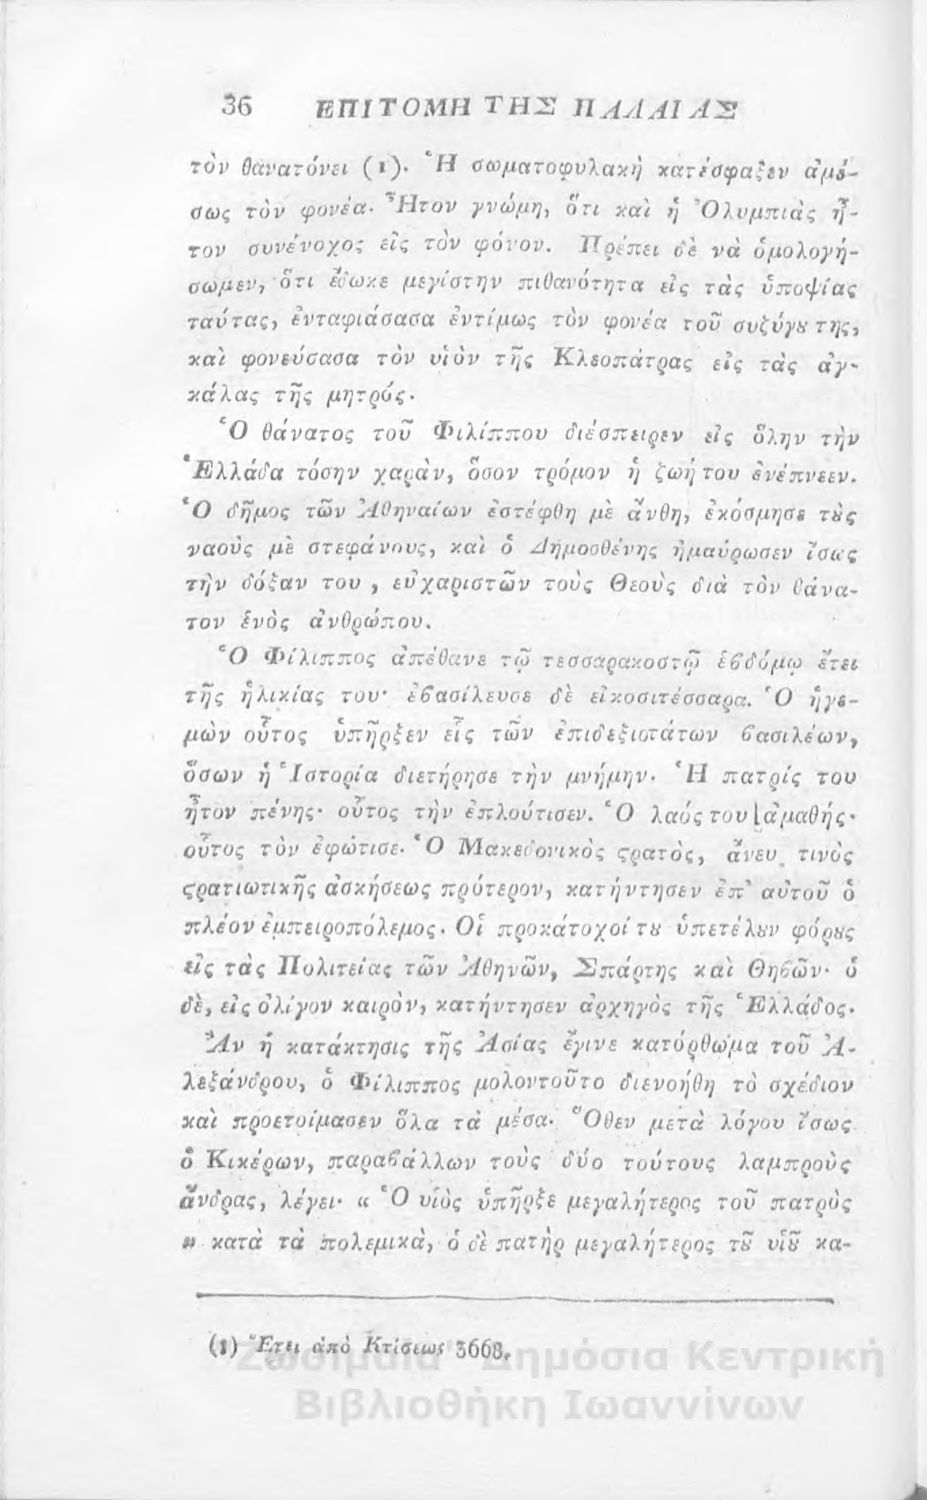 36 ΕΠΙΤΟΜΗ ΤΗΣ ΠΑΛΑΙΑΣ
τὸν θανατόνει (1). Ἡ σωματοφυλακὴ κατέσφαξεν ἀμέ-
σως τὸν φονέα. Ἦτον γνώμη, ὅτι καὶ ἡ Ὀλυμπιὰς ἦ-
τον συνένοχος εἰς τὸν φόνον. Πρέπει δὲ νὰ ὁμολογή-
σωμεν, ὅτι ἔδωκε μεγίστην πιθανότητα εἰς τὰς ὑποψίας
ταύτας, ἐνταφιάσασα ἐντίμως τὸν φονέα τοῦ συζύγȣ της,
καὶ φονεύσασα τὸν υἱὸν τῆς Κλεοπάτρας εἰς τὰς ἀγ-
κάλας τῆς μητρός.
Ὁ θάνατος τοῦ Φιλίππου διέσπειρεν εἰς ὅλην τὴν
Ἑλλάδα τόσην χαρὰν, ὅσον τρόμον ἡ ζωή του ἐνέπνεεν.
Ὁ δῆμος τῶν Ἀθηναίων ἐστέφθη μὲ ἄνθη, ἐκόσμησε τȣ̀ς
ναοὺς μὲ στεφάνους, καὶ ὁ Δημοσθένης ἠμαύρωσεν ἴσως
τὴν δόξαν του , εὐχαριστῶν τοὺς Θεοὺς διὰ τὸν θάνα-
τον ἑνὸς ἀνθρώπου.
Ὁ Φίλιππος ἀπέθανε τῷ τεσσαρακοστῷ ἑϐδόμῳ ἔτει
τῆς ἡλικίας του· ἐϐασίλευσε δὲ εἰκοσιτέσσαρα. Ὁ ἡγε-
μὼν οὗτος ὑπῆρξεν εἷς τῶν ἐπιδεξιοτάτων ϐασιλέων,
ὅσων ἡ Ἱστορία διετήρησε τὴν μνήμην. Ἡ πατρίς του
ἦτον πένης· οὗτος τὴν ἐπλούτισεν. Ὁ λαός του ἀμαθής·
οὗτος τὸν ἐφώτισε. Ὁ Μακεδονικὸς ϛρατὸς, ἄνευ τινὸς
ϛρατιωτικῆς ἀσκήσεως πρότερον, κατήντησεν ἐπ' αὐτοῦ ὁ
πλέον ἐμπειροπόλεμος. Οἱ προκάτοχοί τȣ ὑπετέλȣν φόρȣς
εἰς τὰς Πολιτείας τῶν Ἀθηνῶν, Σπάρτης καὶ Θηϐῶν· ὁ
δὲ, εἰς ὀλίγον καιρὸν, κατήντησεν ἀρχηγὸς τῆς Ἑλλάδος.
Ἂν ἡ κατάκτησις τῆς Ἀσίας ἔγινε κατόρθωμα τοῦ Ἀ-
λεξάνδρου, ὁ Φίλιππος μολοντοῦτο διενοήθη τὸ σχέδιον
καὶ προετοίμασεν ὅλα τὰ μέσα. Ὅθεν μετὰ λόγου ἴσως
ὁ Κικέρων, παραϐάλλων τοὺς δύο τούτους λαμπροὺς
ἄνδρας, λέγει· « Ὁ υἱὸς ὑπῆρξε μεγαλήτερος τοῦ πατρὸς
» κατὰ τὰ πολεμικὰ, ὁ δὲ πατὴρ μεγαλήτερος τȣ͂ υἱȣ͂ κα-
(1) Ἔτει ἀπὸ Κτίσεως 3668.
Ζωσιμαία Δημόσια Κεντρική
Βιβλιοθήκη Ιωαννίνων